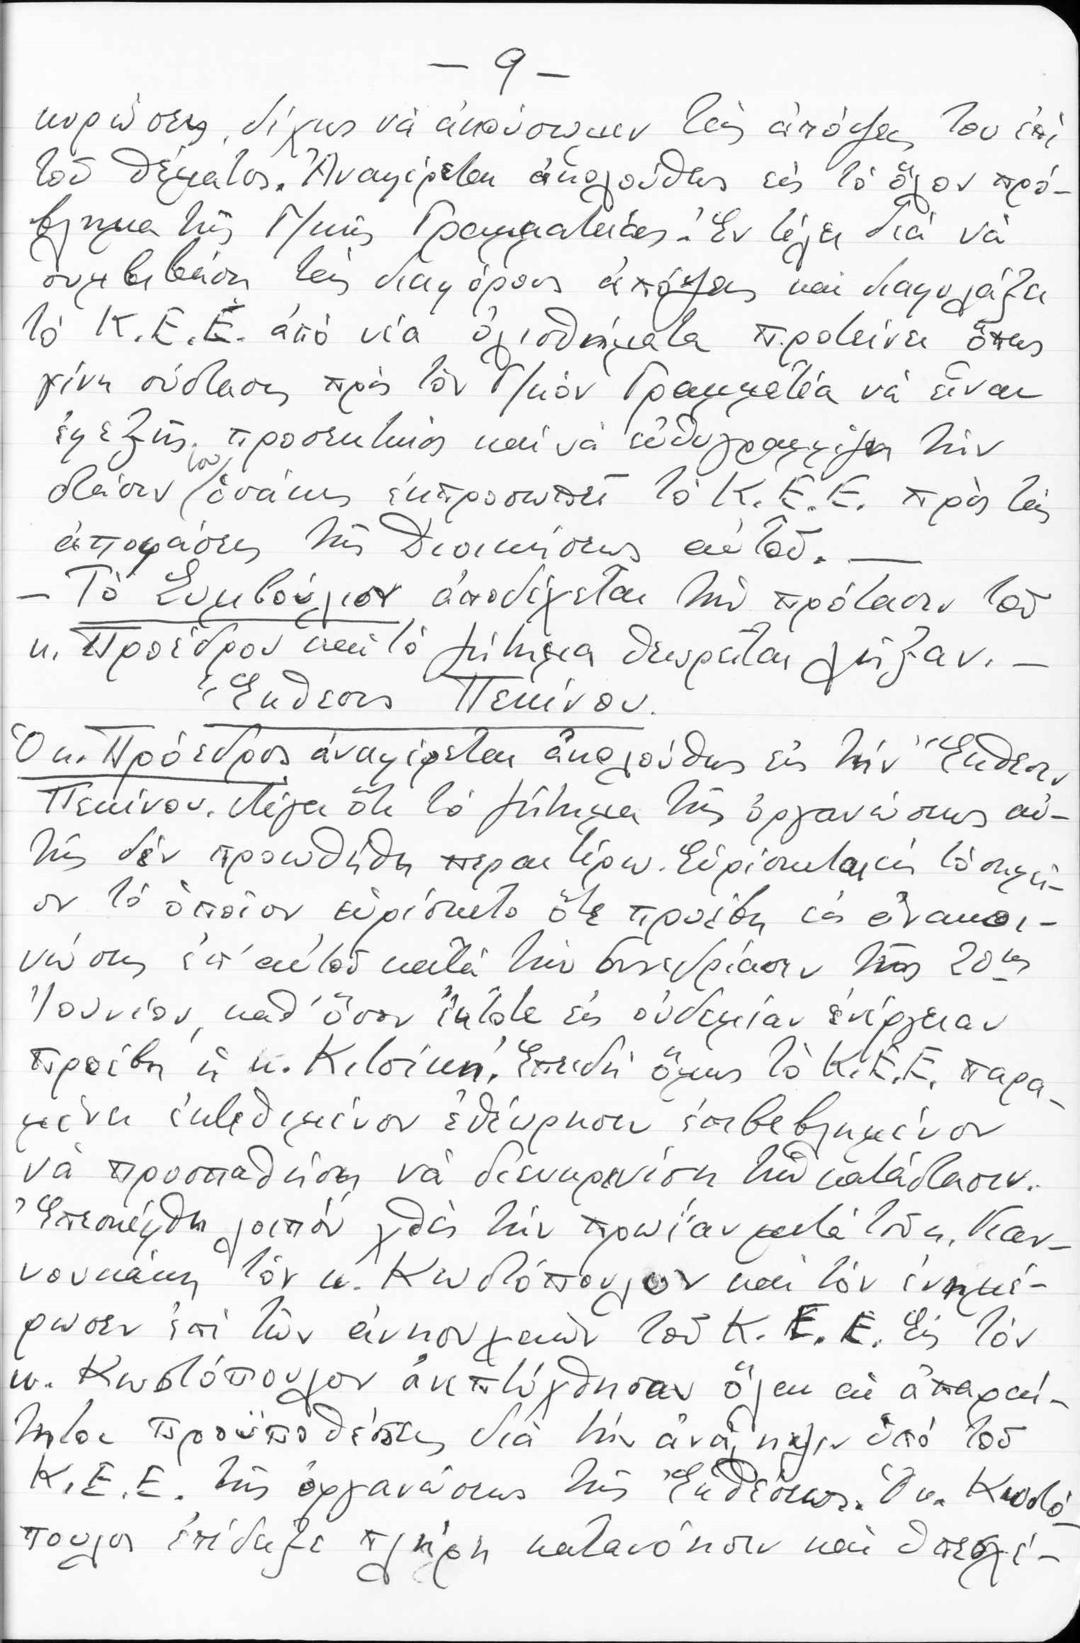 — 9 —
κυρώσεις, δίχως νὰ ἀκούσωμεν τὰς ἀπόψεις του ἐπὶ
τοῦ θέματος. Ἀναφέρεται ἀκολούθως εἰς τὸ ὅλον πρό-
βλημα τῆς Γ/κῆς Γραμματείας. Ἐν τέλει διὰ νὰ
συμβιβάση τὰς διαφόρους ἀπόψεις καὶ διαφυλάξει
τὸ Κ.Ε.Ε. ἀπὸ νέα ὀλισθήματα προτείνει ὅπως
γίνη σύστασις πρὸς τὸν Γ/κὸν Γραμματέα νὰ εἶναι
ἐφεξῆς προσεκτικὸς καὶ νὰ εὐθυγραμμίζη τὴν
στάσιν του ὁσάκις ἐκπροσωπεῖ τὸ Κ.Ε.Ε. πρὸς τὰς
ἀποφάσεις τῆς Διοικήσεως αὐτοῦ. —
— Τὸ Συμβούλιον ἀποδέχεται τὴν πρότασιν τοῦ
κ. Προέδρου καὶ τὸ ζήτημα θεωρεῖται λῆξαν. —
Ἔκθεσις Πεκίνου.
Ὁ κ. Πρόεδρος ἀναφέρεται ἀκολούθως εἰς τὴν Ἔκθεσιν
Πεκίνου. Λέγει ὅτι τὸ ζήτημα τῆς ὀργανώσεως αὐ-
τῆς δὲν προωθήθη περαιτέρω. Εὑρίσκεται εἰς τὸ σημεῖ-
ον τὸ ὁποῖον εὑρίσκετο ὅτε προέβη εἰς ἀνακοι-
νώσεις ἐπ' αὐτοῦ κατὰ τὴν συνεδρίασιν τῆς 20ης
Ἰουνίου, καθ' ὅσον ἔκτοτε εἰς οὐδεμίαν ἐνέργειαν
προέβη ἡ κ. Κιτσίκη. Ἐπειδὴ ὅμως τὸ Κ.Ε.Ε. παρα-
μένει ἐκτεθειμένον ἐθεώρησεν ἐπιβεβλημένον
νὰ προσπαθήση νὰ διευκρινίση τὴν κατάστασιν.
Ἐπεσκέφθη λοιπὸν χθὲς τὴν πρωΐαν μετὰ τοῦ κ. Γιαν-
νουκάκη τὸν κ. Κωστόπουλον καὶ τὸν ἐνημέ-
ρωσεν ἐπὶ τῶν ἀνησυχιῶν τοῦ Κ.Ε.Ε. Εἰς τὸν
κ. Κωστόπουλον ἀνεπτύχθησαν ὅλαι αἱ ἀπαραί-
τητοι προϋποθέσεις διὰ τὴν ἀνάληψιν ὑπὸ τοῦ
Κ.Ε.Ε. τῆς ὀργανώσεως τῆς Ἐκθέσεως. Ὁ κ. Κωστό-
πουλος ἐπέδειξε πλήρη κατανόησιν καὶ ὑπεσχέ-